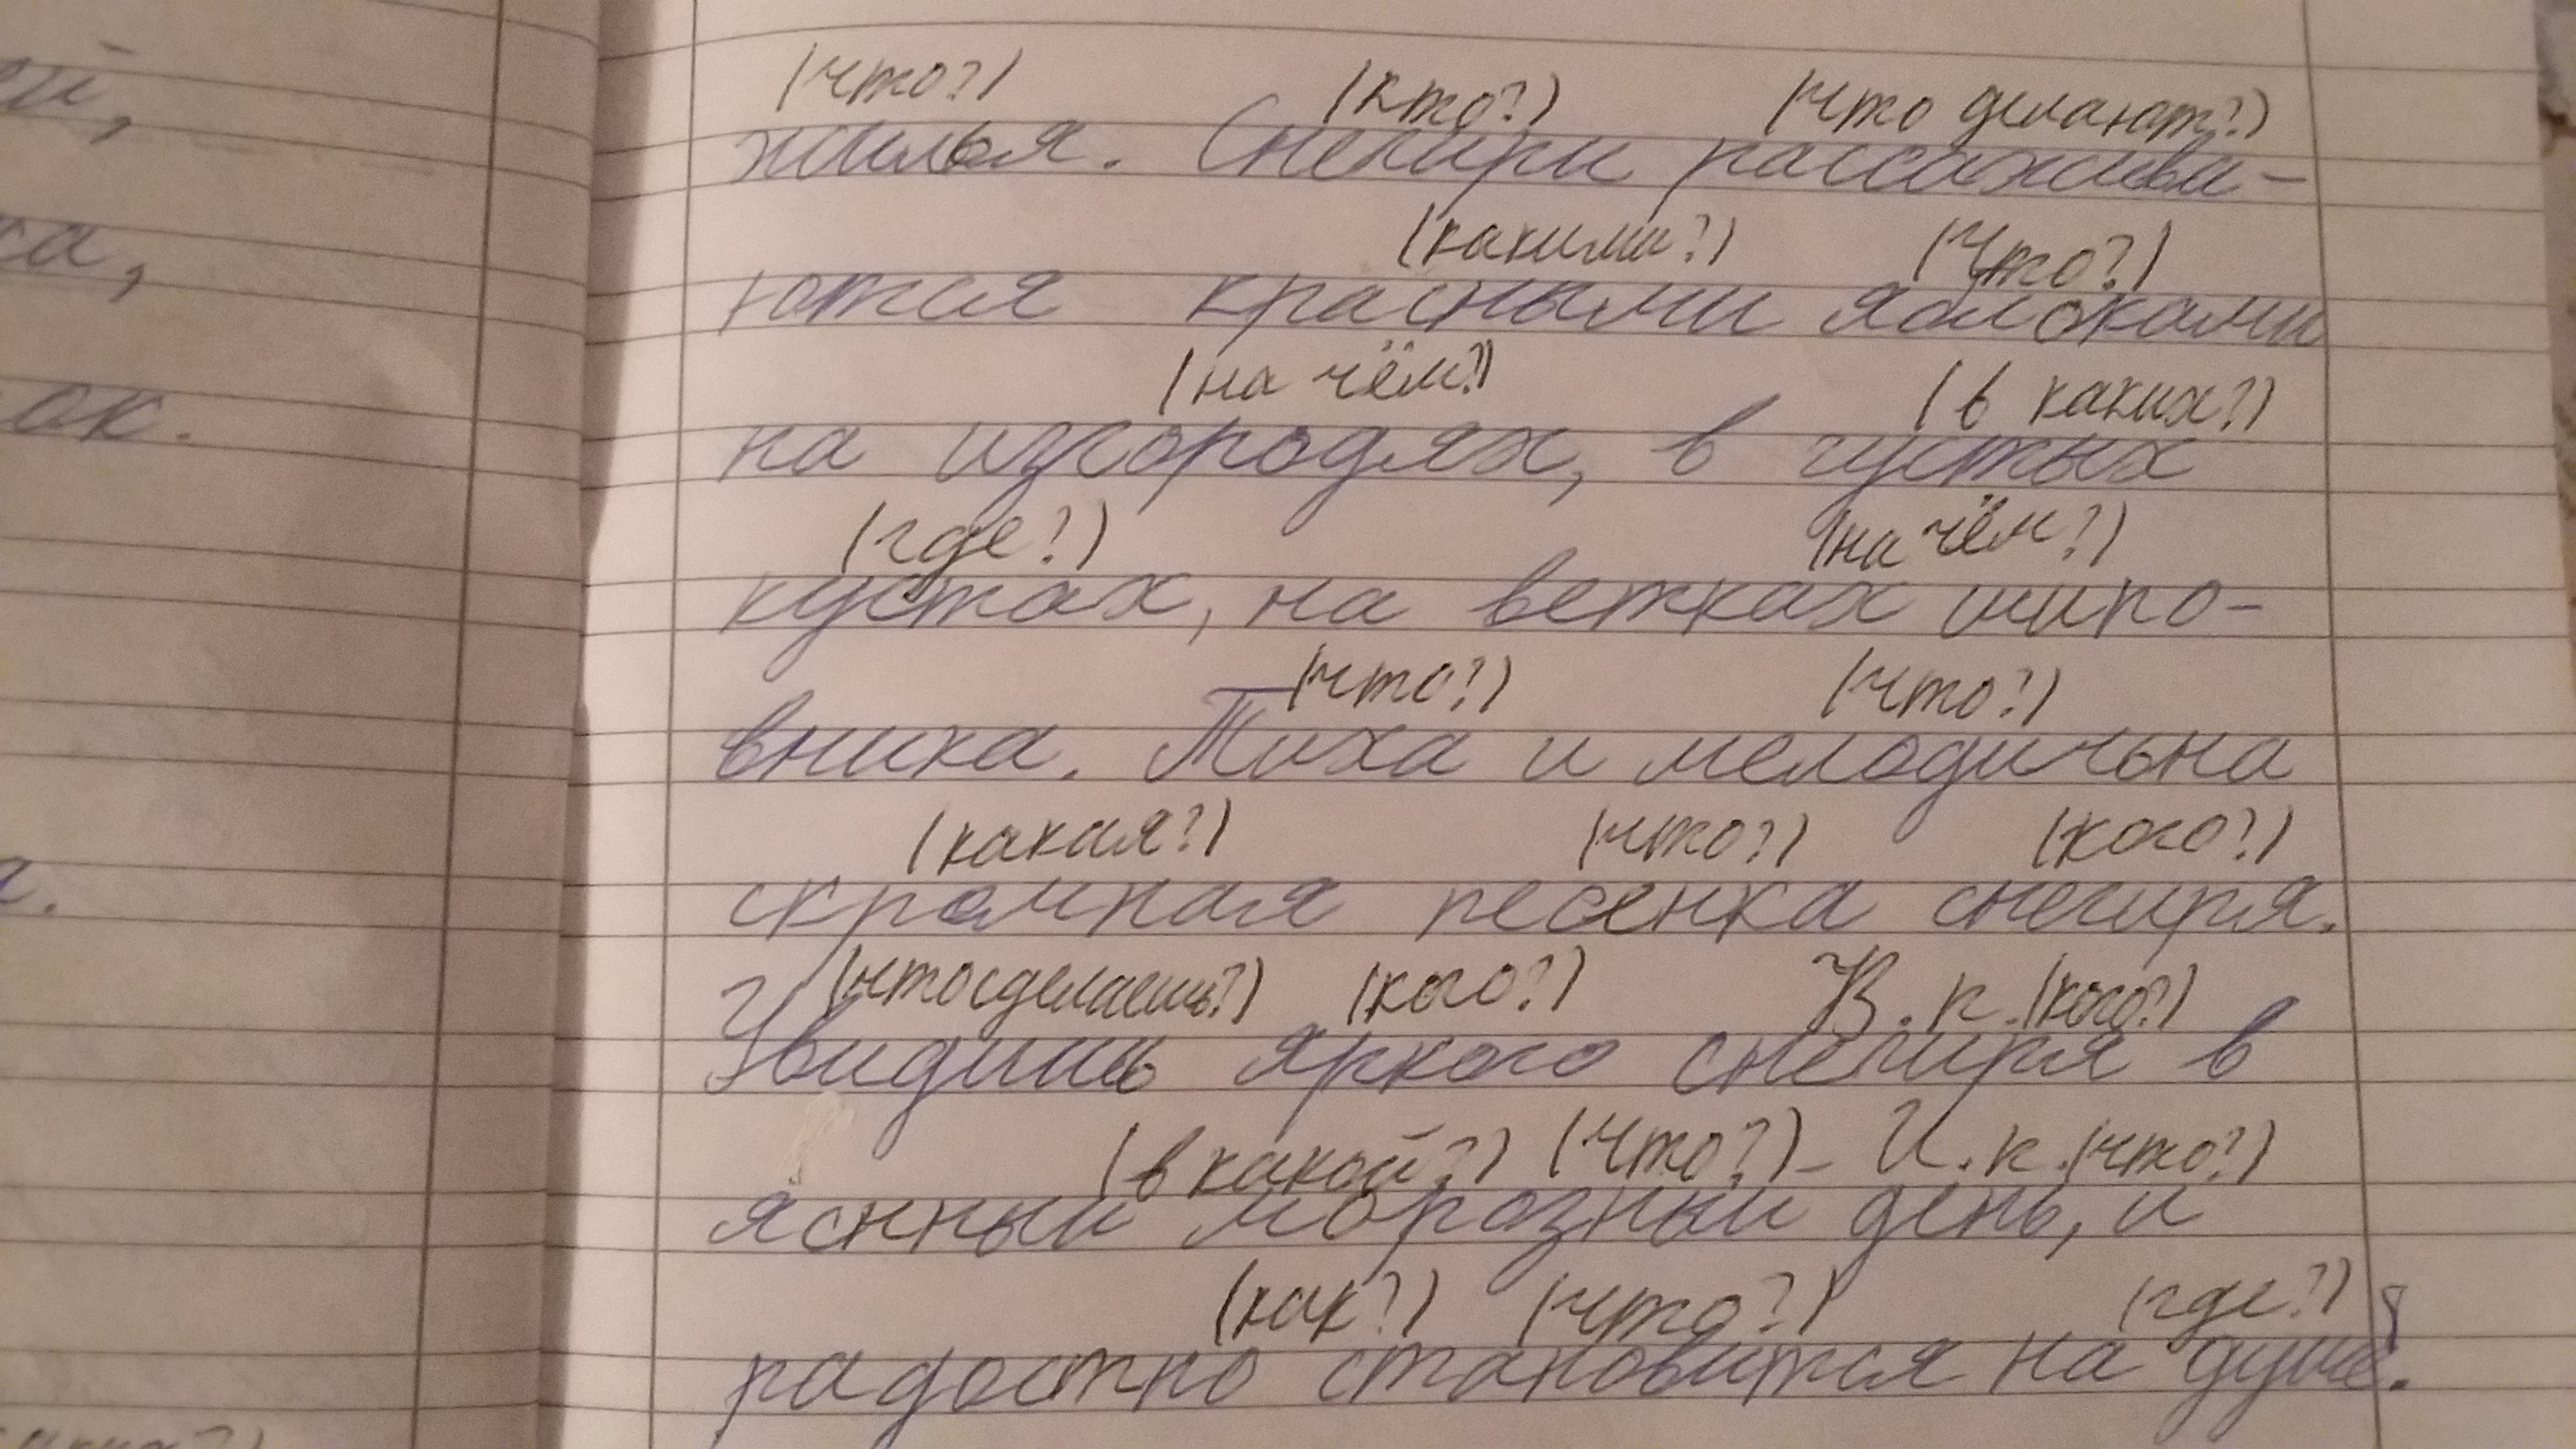 ей,
ка,
ок.
а.
(что?) (кто?) (что делают?)
жилья. Снегири рассажива-
(какими?) (что?)
ются красными яблоками
(на чём?) (в каких?)
на изгородях, в густых
(где?) (на чём?)
кустах, на ветках шипо-
(что?) (что?)
вника. Тиха и мелодична
(какая?) (что?) (кого?)
скромная песенка снегиря.
(что сделаешь?) (кого?) В.п. (кого?)
Увидишь яркого снегиря в
(в какой?) (что?) - И.п. (что?)
яснный морозный день, и
(как?) (что?) (где?)
радостно становится на душе.